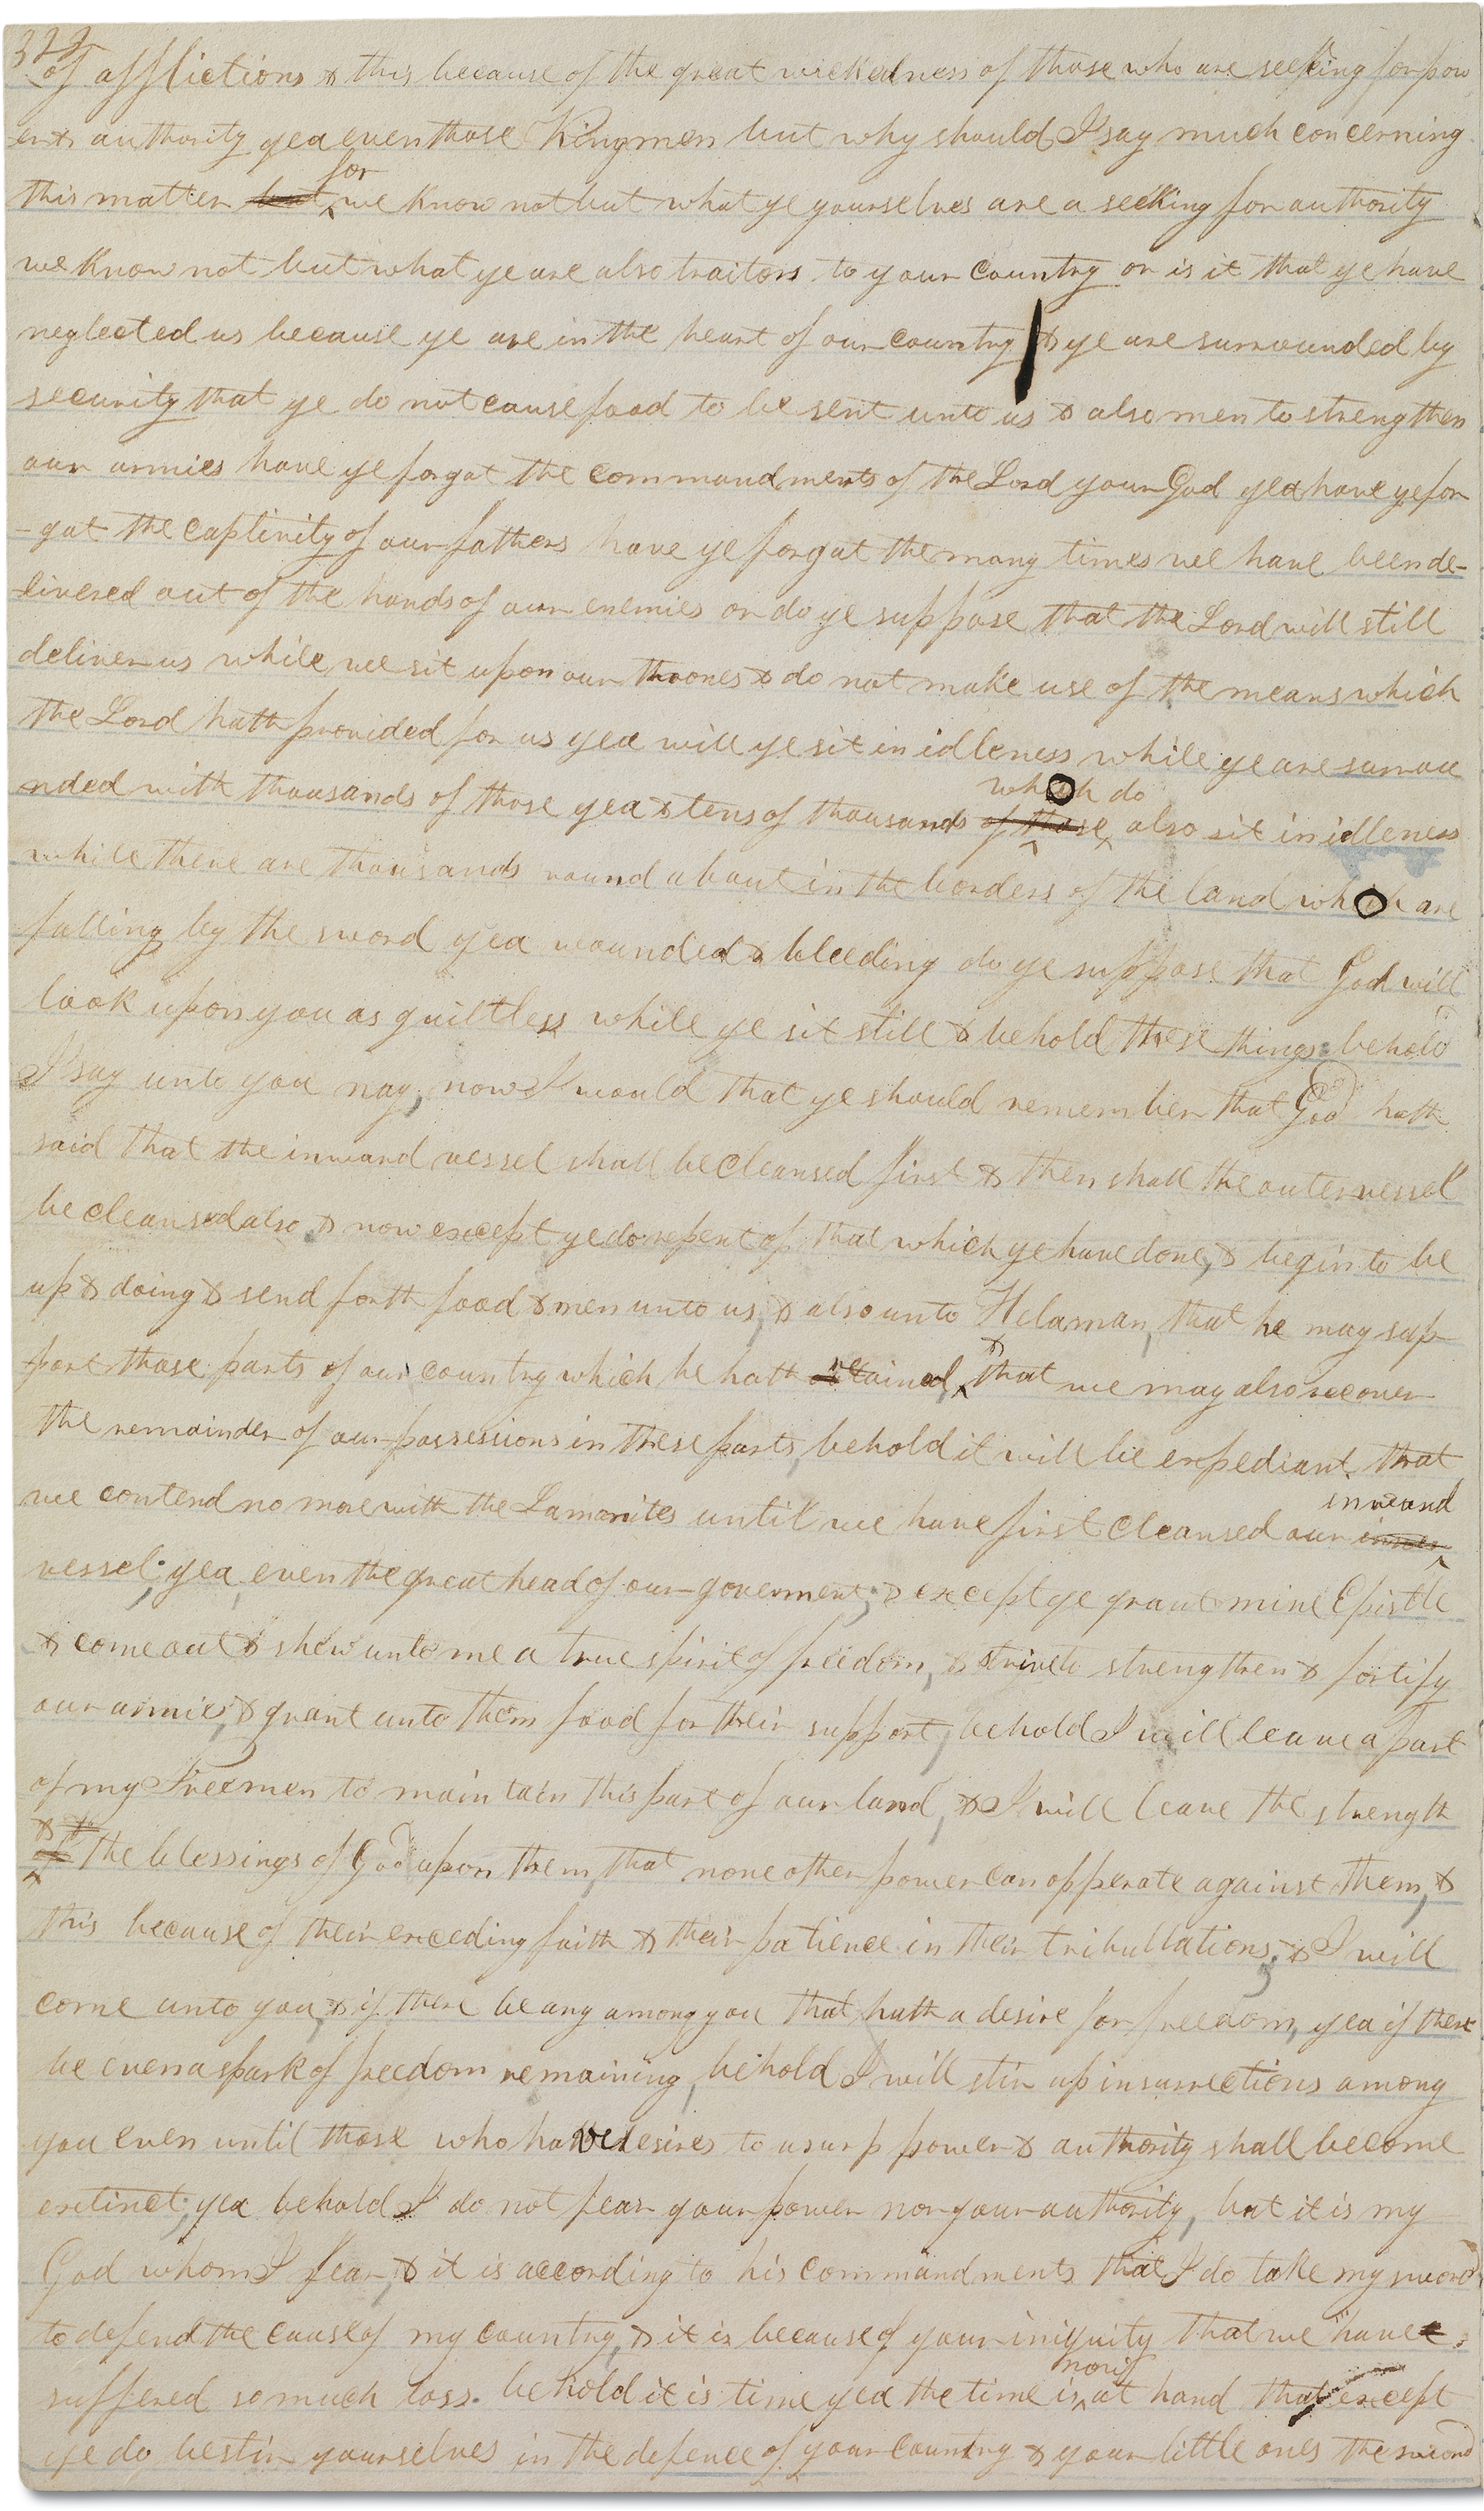 322
of afflictions & this because of the great wickedness of those who are seeking for pow
er & authority yea even those Kingmen but why should I say much concerning
for
this matter but we know not but what ye yourselves are a seeking for authority
we know not but what ye are also traitors to your country or is it that ye have
neglected us because ye are in the heart of our country & ye are surrounded by
security that ye do not cause food to be sent unto us & also men to strengthen
our armies have ye forgot the commandments of the Lord your God yea have ye for
-got the captivity of our fathers have ye forgot the many times we have been de-
livered out of the hands of our enemies or do ye suppose that the Lord will still
deliver us while we sit upon our thrones & do not make use of the means which
the Lord hath provided for us yea will ye sit in idleness while ye are surrou
which do
nded with thousands of those yea & tens of thousands of those also sit in idleness
while there are thousands round about in the borders of the land which are
falling by the sword yea wounded & bleeding do ye suppose that God will
look upon you as guiltless while ye sit still & behold these things behold
I say unto you nay, now I would that ye should remember that God hath
said that the inward vessel shall be cleansed first & then shall the outer vessel
be cleansed also & now except ye do repent of that which ye have done, & begin to be
up & doing & send forth food & men unto us, & also unto Helaman, that he may sup
&
port those parts of our country which he hath retained, that we may also recover
the remainder of our possessions in these parts, behold it will be expediant that
inward
we contend no more with the Lamanites until we have first cleansed our inner
vessel; yea, even the great head of our goverment; & except ye grant mine Epistle
& come out & shew unto me a true spirit of freedom, & strive to strengthen & fortify
our armies, & grant unto them food for their support, behold I will leave a part
of my Freemen to maintain this part of our land, & I will leave the strength
& the
of the blessings of God upon them, that none other power can opperate against them, &
this because of their exceeding faith & their patience in their tribullations; & I will
come unto you, & if there be any among you that hath a desire for freedom, yea if there
be even a spark of freedom remaining, behold I will stir up insurrections among
you even until those who have desires to usurp power & authority shall become
extinct; yea behold I do not fear your power nor your authority, but it is my
God whom I fear, & it is according to his commandments that I do take my sword
to defend the cause of my country, & it is because of your iniquity that we have
now
suffered so much loss. behold it is time yea the time is at hand that except
ye do bestir yourselves in the defence of your country & your little ones the sword